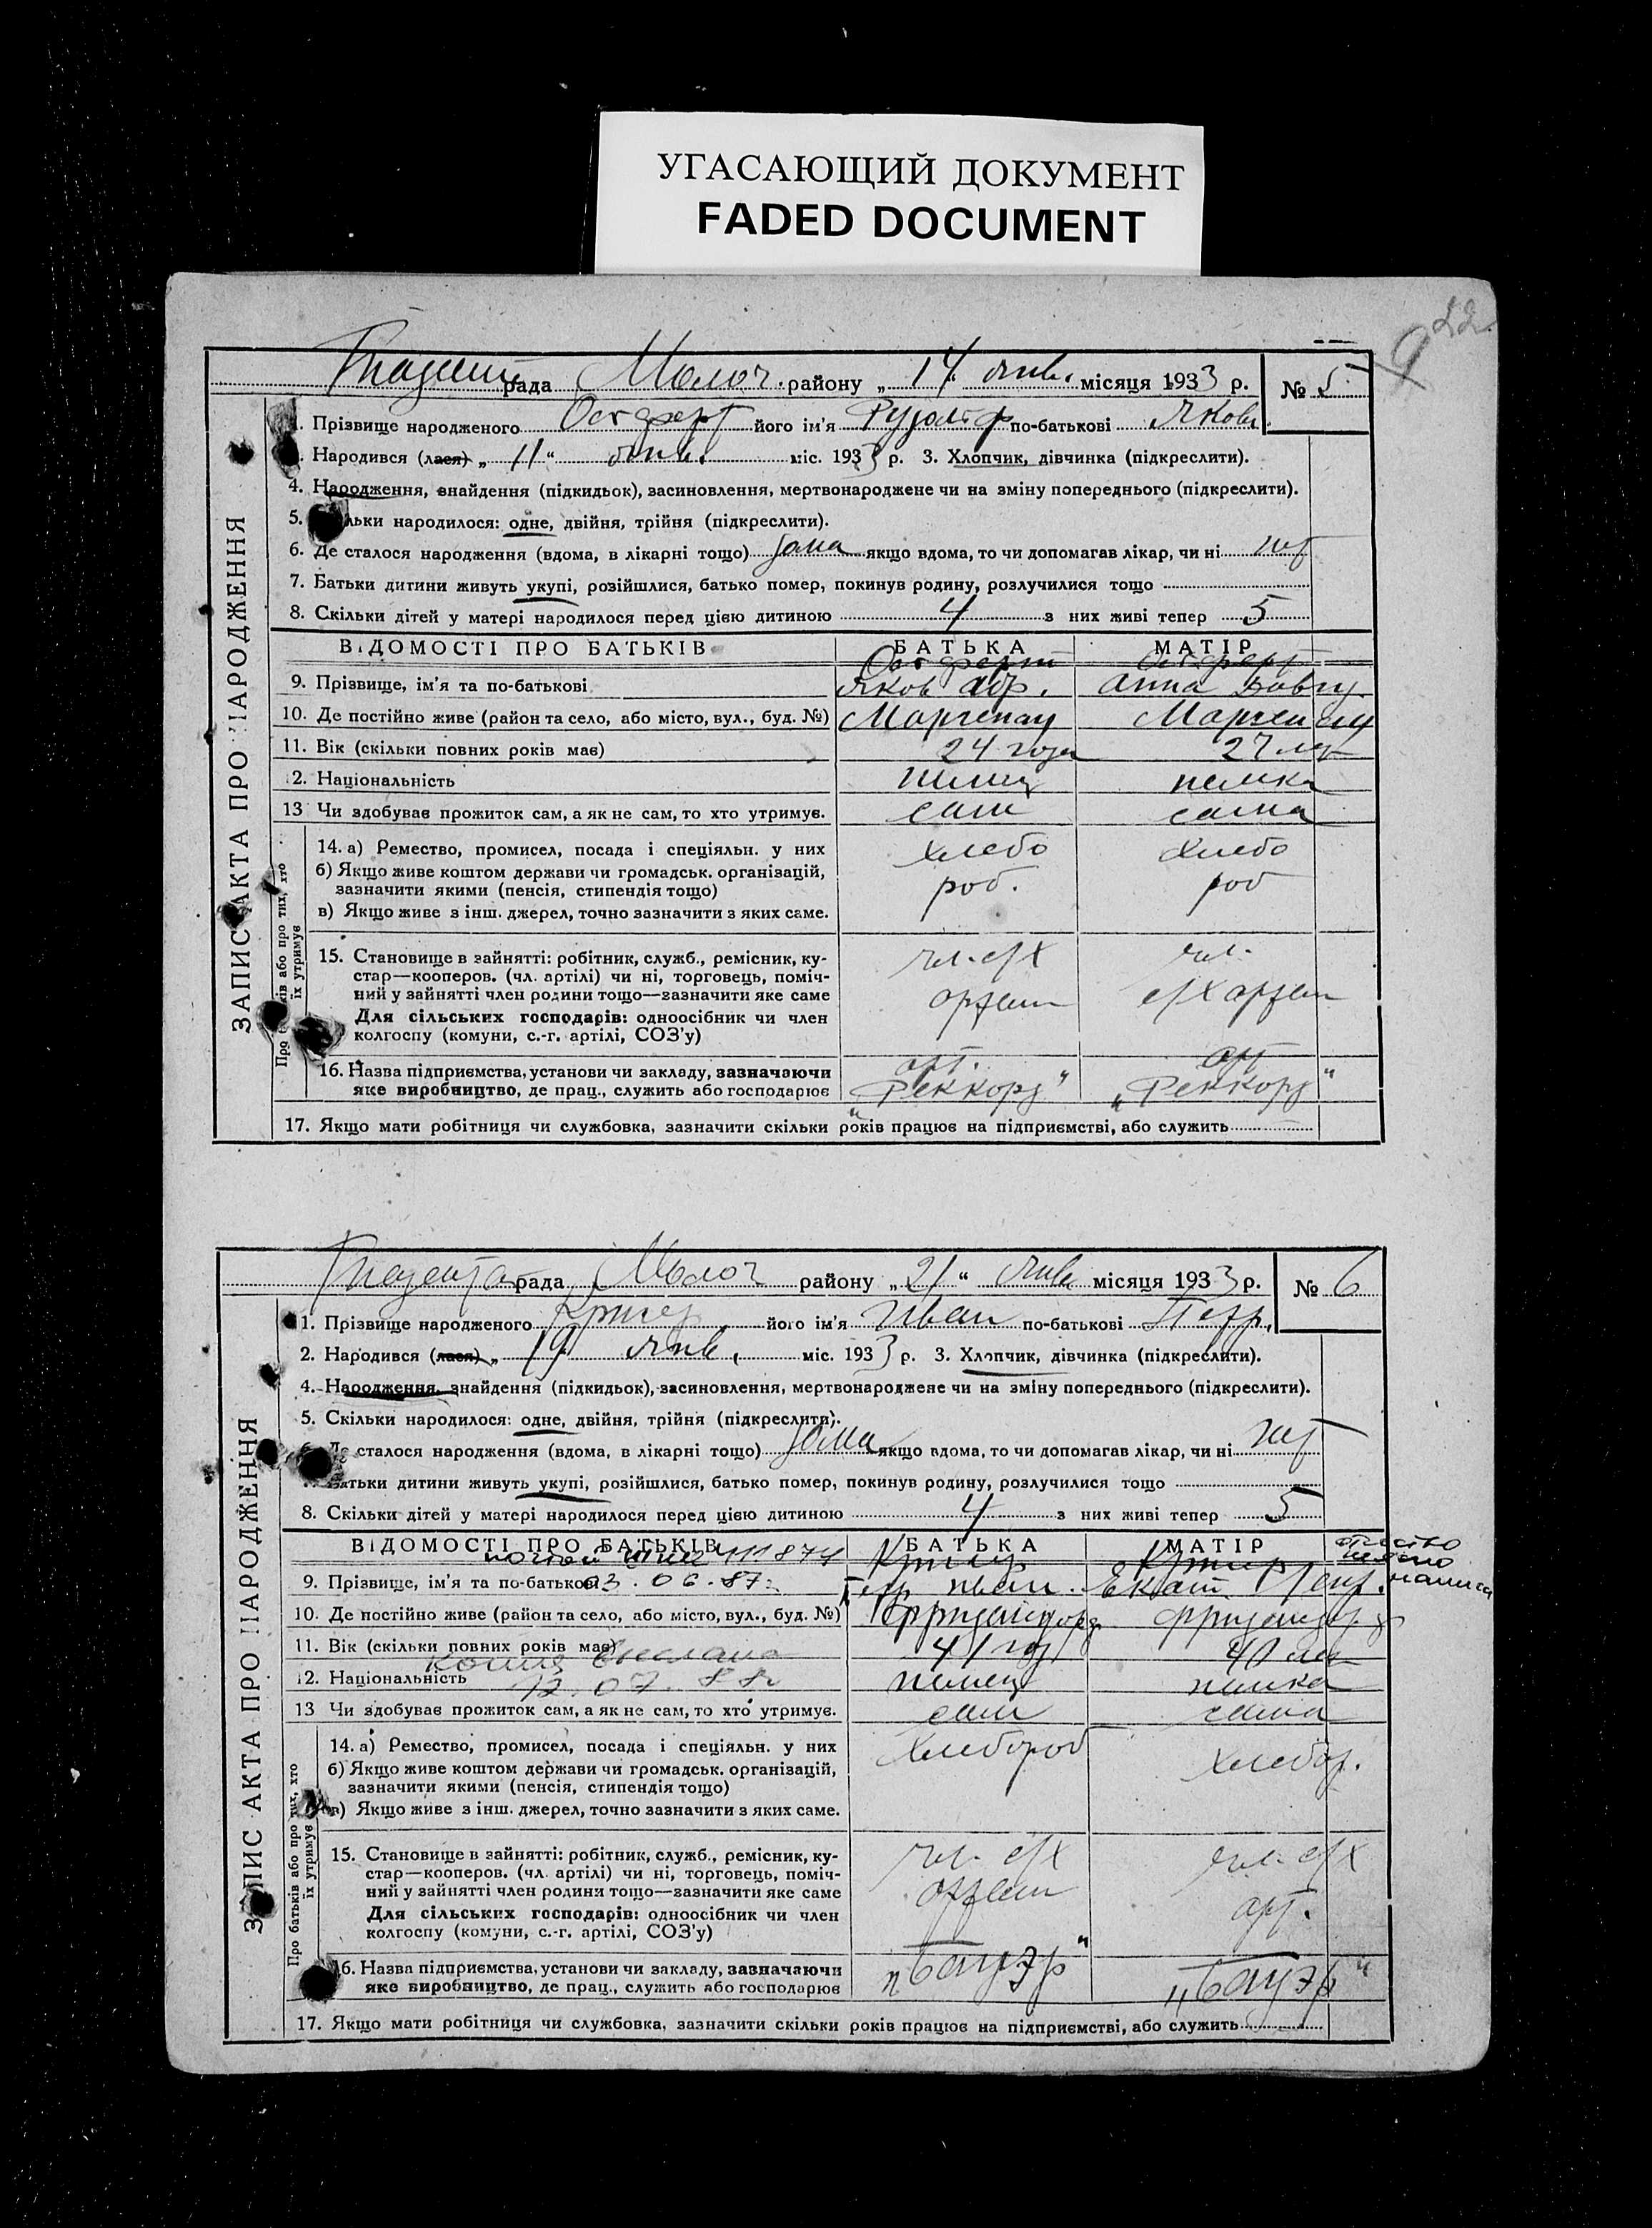 УГАСАЮЩИЙ ДОКУМЕНТ
FADED DOCUMENT
22
9
рада Молоч. району „14“ янв. місяця 1933 р. № 5
1. Прізвище народженого Остферт його ім'я Рудольф по-батькові Яковл.
Народився (лася) „11“ янв. міс. 1933 р. 3. Хлопчик, дівчинка (підкреслити).
4. Народження, знайдення (підкидьок), засиновлення, мертвонароджене чи на зміну попереднього (підкреслити).
5. льки народилося: одне, двійня, трійня (підкреслити).
6. Де сталося народження (вдома, в лікарні тощо) дома якщо вдома, то чи допомагав лікар, чи ні нет
7. Батьки дитини живуть укупі, розійшлися, батько помер, покинув родину, розлучилися тощо
8. Скільки дітей у матері народилося перед цією дитиною 4 з них живі тепер 5
ВІДОМОСТІ ПРО БАТЬКІВ БАТЬКА МАТІР
Остферт Остферт
9. Прізвище, ім'я та по-батькові Яков Анна
10. Де постійно живе (район та село, або місто, вул., буд. №) Маргенау Маргенау
11. Вік (скільки повних років має) 24 года 27 лет
12. Національність немец немка
13 Чи здобуває прожиток сам, а як не сам, то хто утримує. сам сама
14. а) Ремество, промисел, посада і спеціяльн. у них хлебо хлебо
б) Якщо живе коштом держави чи громадськ. організацій, роб. роб
зазначити якими (пенсія, стипендія тощо)
в) Якщо живе з інш. джерел, точно зазначити з яких саме.
15. Становище в зайнятті: робітник, служб., ремісник, ку- чл. с/х чл.
стар—кооперов. (чл. артілі) чи ні, торговець, поміч-
ний у зайнятті член родини тощо—зазначити яке саме артели с/х артели
Для сільських господарів: одноосібник чи член
колгоспу (комуни, с.-г. артілі, СОЗ'у)
арт. арт
16. Назва підприємства, установи чи закладу, зазначаючи „Реккорд“ „Реккорд“
яке виробництво, де прац., служить або господарює
17. Якщо мати робітниця чи службовка, зазначити скільки років працює на підприємстві, або служить
ЗАПИС АКТА ПРО НАРОДЖЕННЯ
рада Молоч району „21“ янв місяця 1933 р. № 6
1. Прізвище народженого Кригер його ім'я Иван по-батькові Петр.
2. Народився (лася) „19“ янв. міс. 1933 р. 3. Хлопчик, дівчинка (підкреслити).
4. Народження, знайдення (підкидьок), засиновлення, мертвонароджене чи на зміну попереднього (підкреслити).
5. Скільки народилося: одне, двійня, трійня (підкреслити).
Де сталося народження (вдома, в лікарні тощо) дома якщо вдома, то чи допомагав лікар, чи ні нет
Батьки дитини живуть укупі, розійшлися, батько помер, покинув родину, розлучилися тощо
8. Скільки дітей у матері народилося перед цією дитиною 4 з них живі тепер 5
ВІДОМОСТІ ПРО БАТЬКІВ БАТЬКА МАТІР отчество
411874 Кригер Кригер неясно
9. Прізвище, ім'я та по-батькові 03.06.87г. Петр Иван. Екат
10. Де постійно живе (район та село, або місто, вул., буд. №) Фриденсдорф
11. Вік (скільки повних років має) 41 год 40 лет
копия выслана
12. Національність 12.07.88г немец немка
13 Чи здобуває прожиток сам, а як не сам, то хто утримує. сам сама
14. а) Ремество, промисел, посада і спеціяльн. у них хлебороб хлебор.
б) Якщо живе коштом держави чи громадськ. організацій,
зазначити якими (пенсія, стипендія тощо)
в) Якщо живе з інш. джерел, точно зазначити з яких саме.
15. Становище в зайнятті: робітник, служб., ремісник, ку- чл. с/х чл. с/х
стар—кооперов. (чл. артілі) чи ні, торговець, поміч-
ний у зайнятті член родини тощо—зазначити яке саме артели арт.
Для сільських господарів: одноосібник чи член
колгоспу (комуни, с.-г. артілі, СОЗ'у)
16. Назва підприємства, установи чи закладу, зазначаючи „Бауэр“ „Бауэр“
яке виробництво, де прац., служить або господарює
17. Якщо мати робітниця чи службовка, зазначити скільки років працює на підприємстві, або служить
ЗАПИС АКТА ПРО НАРОДЖЕННЯ
Про батьків або про тих, хто
їх утримує